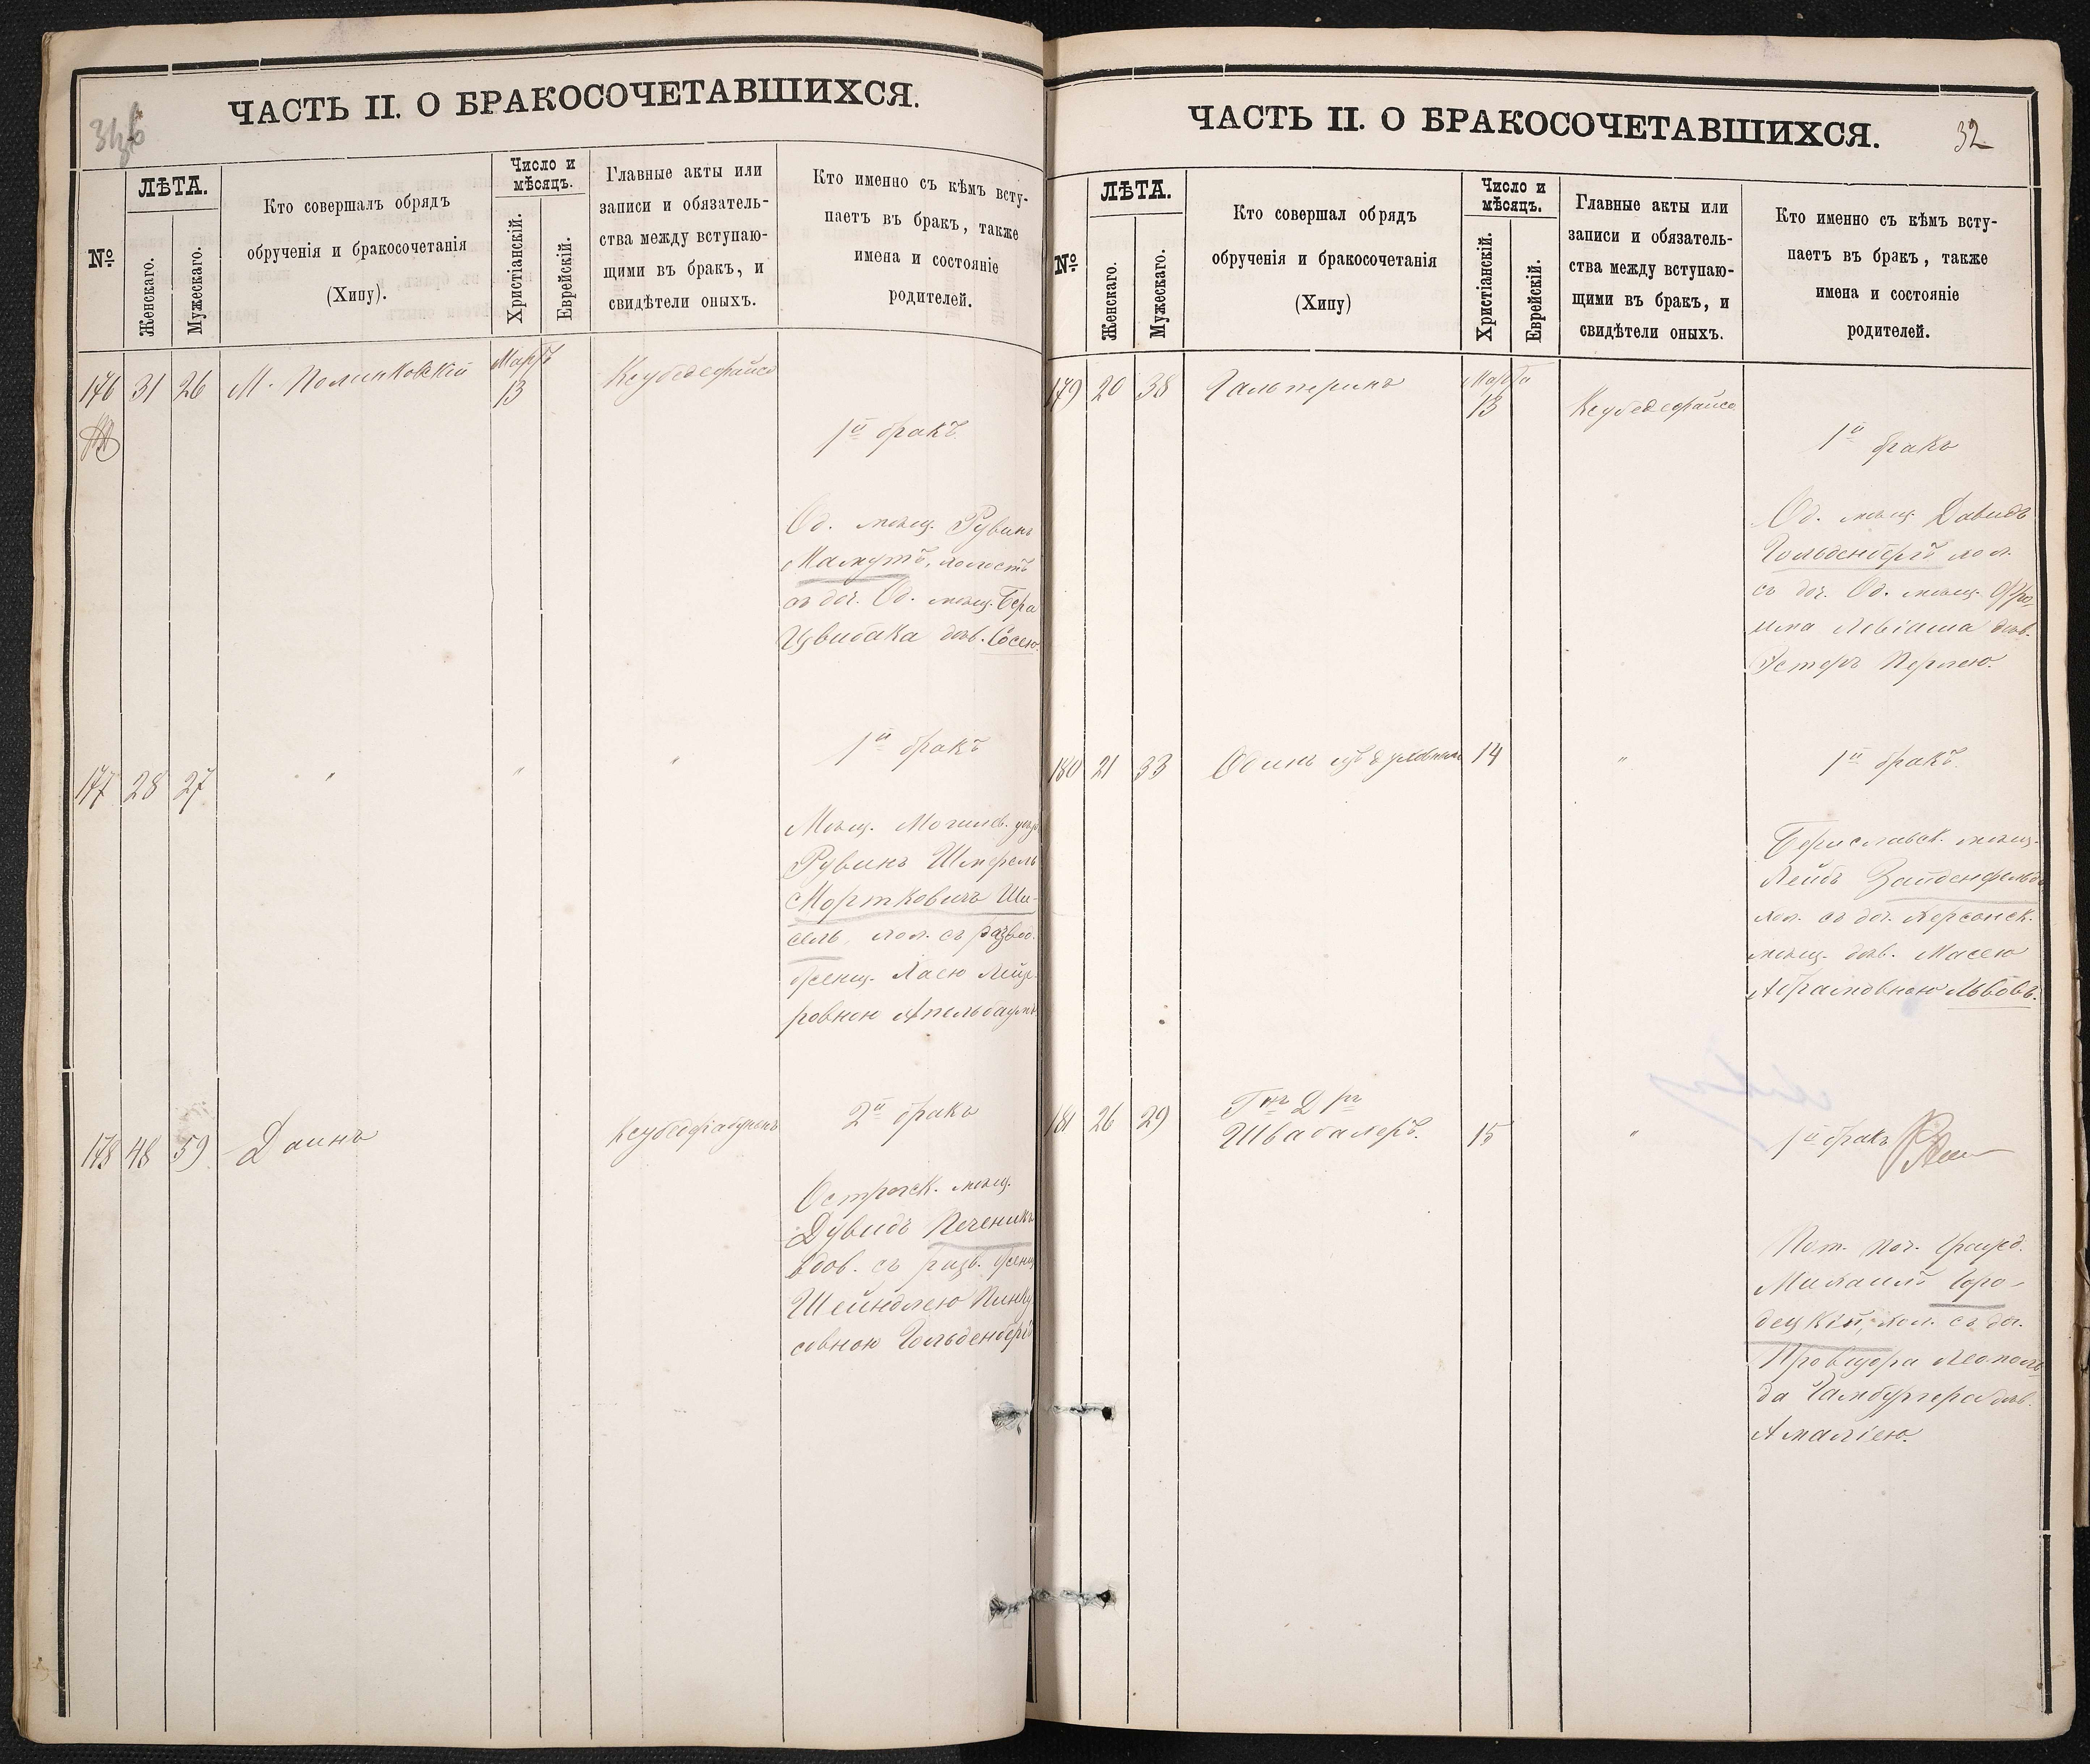 ЧАСТЬ II. О БРАКОСОЧЕТАВШИХСЯ.
№
ЛѢТА.
Женскаго.
Мужескаго.
Кто совершалъ обрядъ
обрученія и бракосочетанія
(Хипу).
Число и
мѣсяцъ.
Христіанскій.
Еврейскій.
Главные акты или
записи и обязатель-
ства между вступаю-
щими въ бракъ, и
свидѣтели оныхъ.
Кто именно съ кѣмъ всту-
паетъ въ бракъ, также
имена и состояніе
родителей.
176 31 26 М. Полинковскій Марта 13 Ксубедефайсо
1й бракъ
Од. мѣщ. Рувинъ
Мамутъ, холостъ
съ доч. Од. мѣщ. Бера
Цвибака дѣв. Сосею.
177 28 27 " " "
1й бракъ
Мѣщ. Могилев. уѣзд
Рувинъ Шмерель
Мортковичъ Ши-
сель, хол. съ развод.
женщ. Хаею Лейзе
ровною Апельбаумъ
178 48 59 Даинъ
2й бракъ
Острогск. мѣщ.
Дувидъ Печеникъ
вдов. съ разв. женщ
Шейндлею Пинку
совною Гольденбергъ
ЧАСТЬ II. О БРАКОСОЧЕТАВШИХСЯ.
32
№
ЛѢТА.
Женскаго.
Мужескаго.
Кто совершал обрядъ
обрученія и бракосочетанія
(Хипу)
Число и
мѣсяцъ.
Христіанскій.
Еврейскій.
Главные акты или
записи и обязатель-
ства между вступаю-
щими въ бракъ, и
свидѣтели оныхъ.
Кто именно съ кѣмъ всту-
паетъ въ бракъ, также
имена и состояніе
родителей.
179 20 38 Гальперинъ Марта 13 Ксубедефайсо
1й бракъ
Од. мѣщ. Давидъ
Гольденбергъ хол.
съ доч. Од. мѣщ. Фро-
има Левіаша дѣв.
Эстеръ Перлею.
180 21 33 Одинъ изъ духовныхъ 14 "
1й бракъ
Бериславск. мѣщ.
Лейбъ Зайденфельдъ
хол. съ доч. Херсонск.
мѣщ. дѣв. Масею
Абрамовною Львовъ.
181 26 29 Гнъ Дръ
Швабахеръ. 15 "
1й бракъ
Пот. поч. гражд.
Михаилъ Горо-
децкій, хол. съ доч.
Провизора Леополь
да Гамбургера дѣв.
Амаліею.